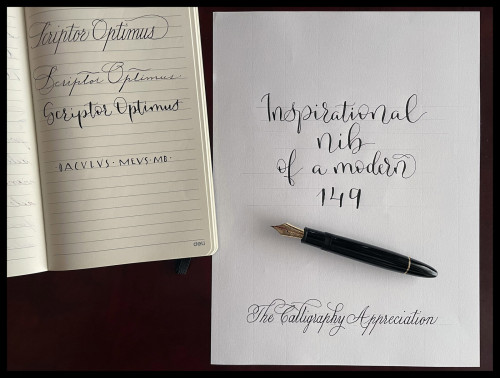 Scriptor Optimus
Scriptor Optimus
Scriptor Optimus
IACVLVS · MEVS · MB ·
Inspirational
nib
of a modern
149
The Calligraphy Appreciation